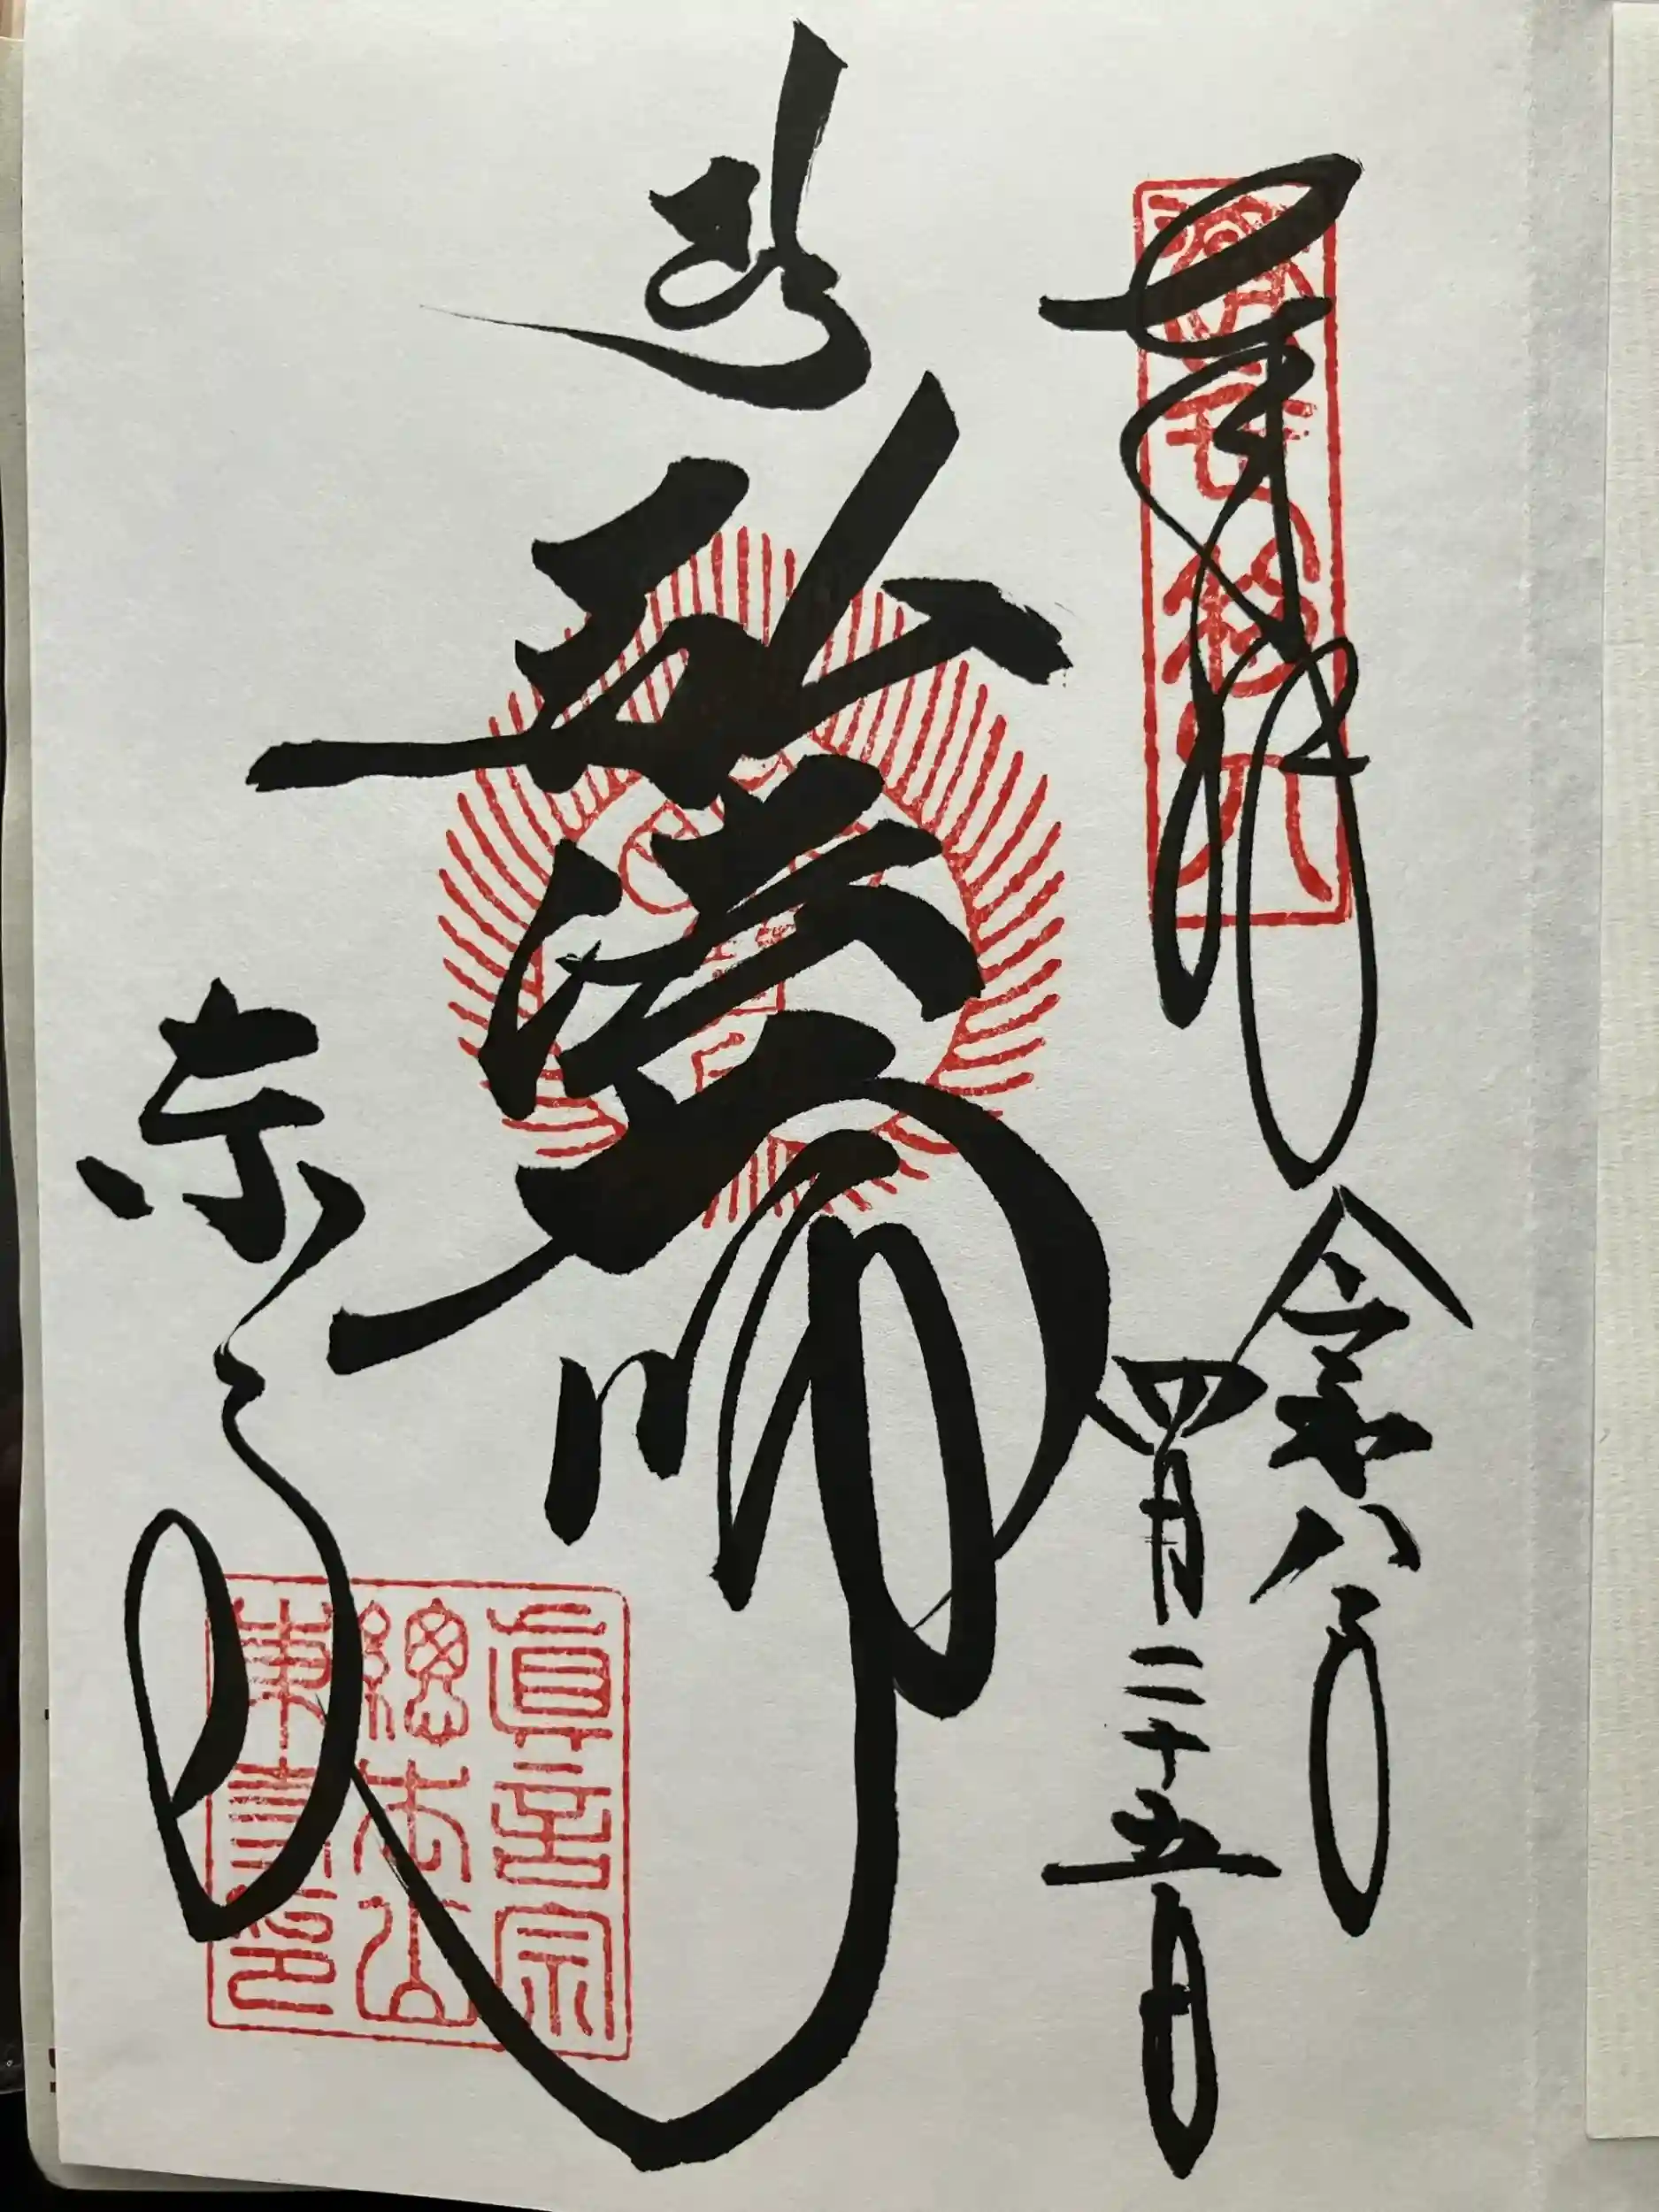 奉拝
令和八年
四月二十五日
弘法大師
東寺
眞言宗
總本山
東寺印